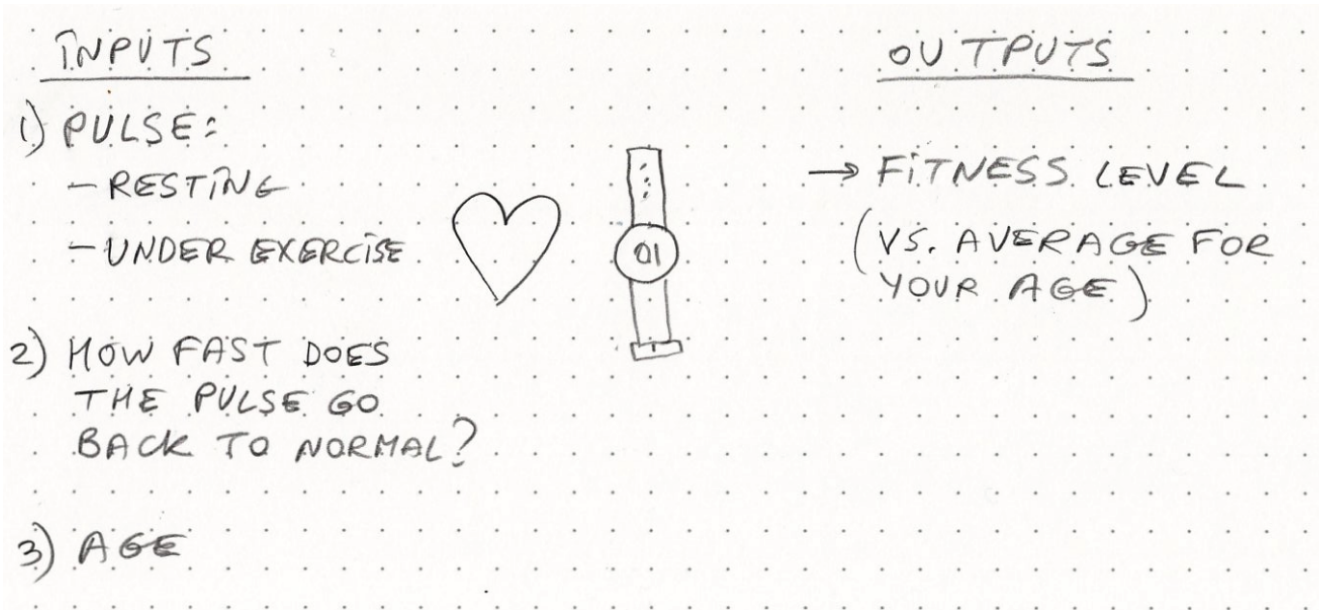 INPUTS
1) PULSE:
- RESTING
- UNDER EXERCISE
2) HOW FAST DOES
THE PULSE GO
BACK TO NORMAL?
3) AGE
01
OUTPUTS
→ FITNESS LEVEL
(VS. AVERAGE FOR
YOUR AGE)